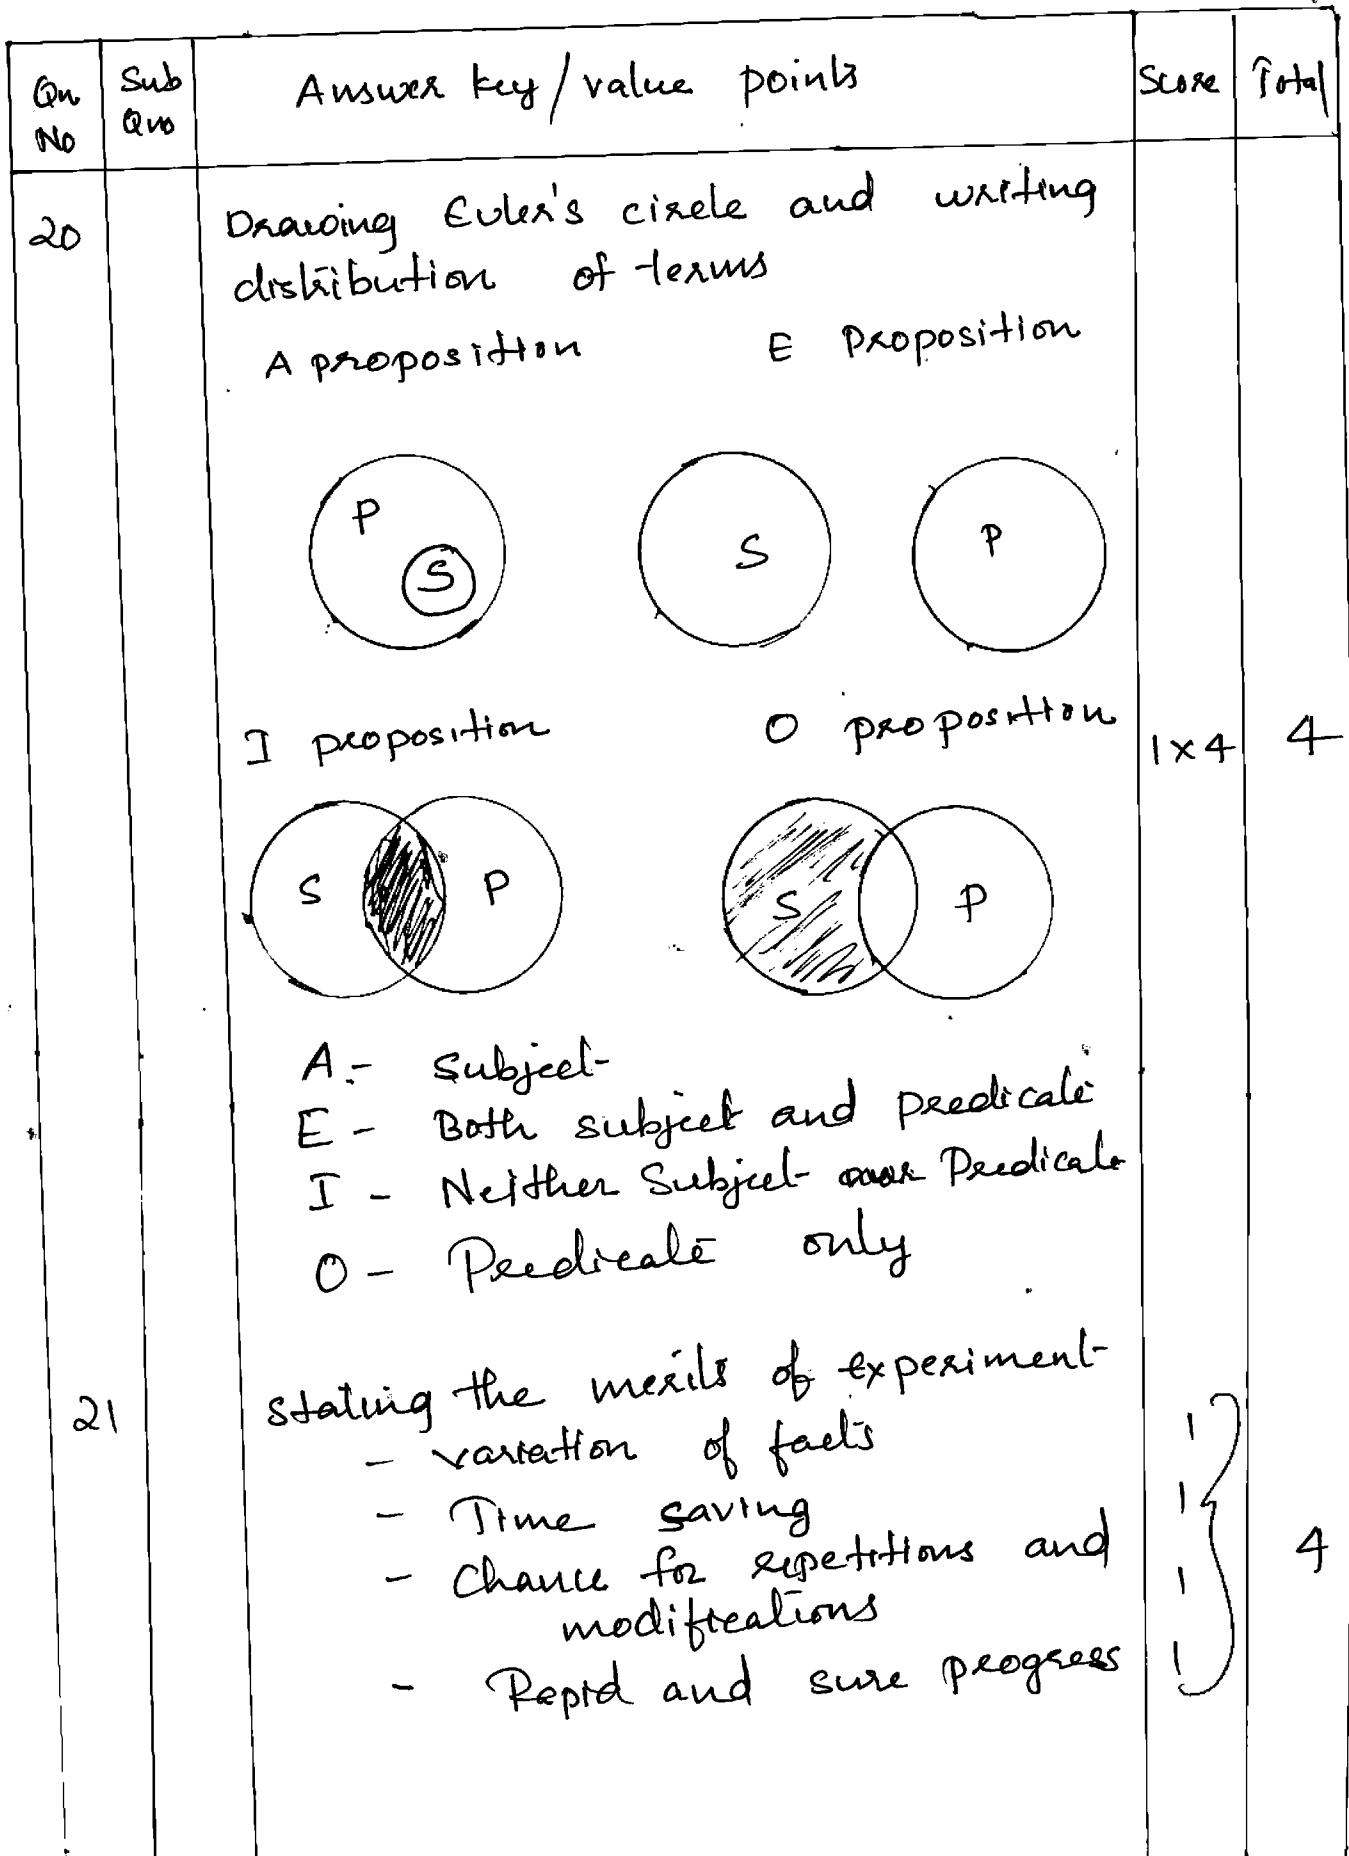 Qn No Sub Qno Answer key/value points Score Total
20 Drawing Euler's circle and writing
distribution of terms
A proposition E Proposition
P S S P
I proposition O proposition 1x4 4
S P S P
A - Subject
E - Both subject and predicate
I - Neither Subject nor Predicate
O - Predicate only
21 Stating the merits of experiment
- variation of facts 1
- Time saving 1
- Chance for repetitions and 4
modifications 1
- Repid and sure progress 1